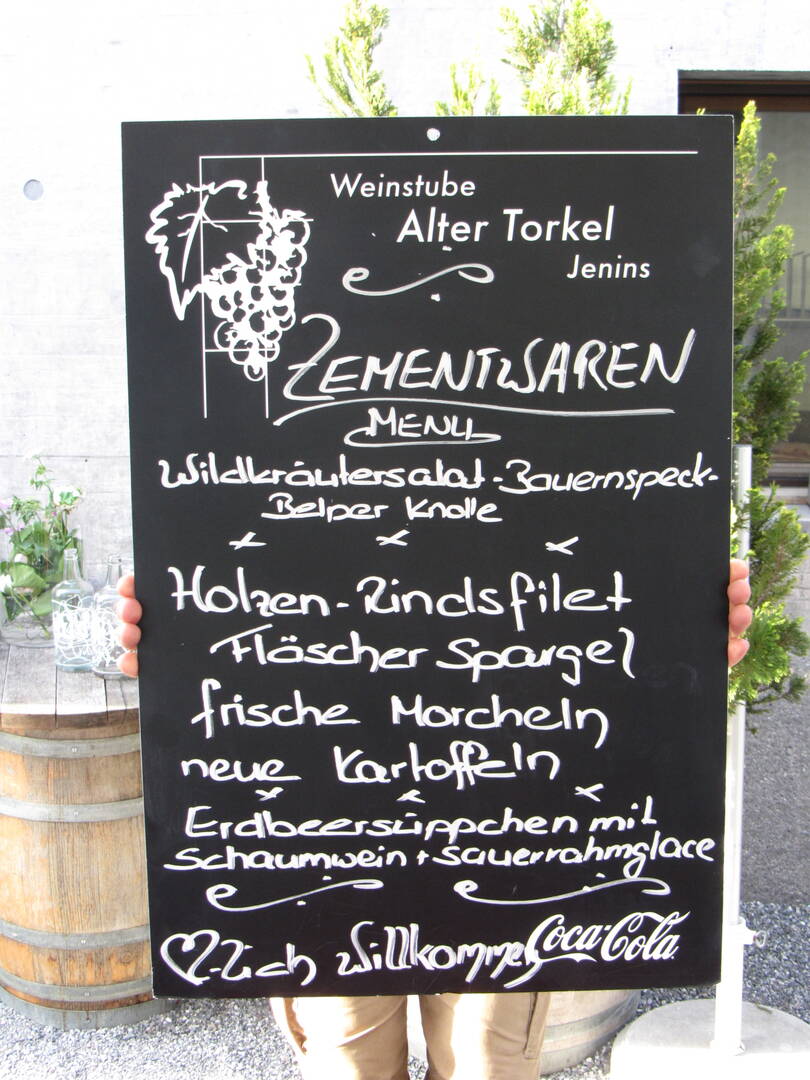 Weinstube
Alter Torkel
Jenins
ZEMENTWAREN
MENU
Wildkräutersalat - Bauernspeck-
Belper Knolle
Holzen - Rindsfilet
Fläscher Spargel
frische Morcheln
neue Kartoffeln
Erdbeersüppchen mit
Schaumwein + Sauerrahmglace
♡-lich Willkommen
Coca-Cola